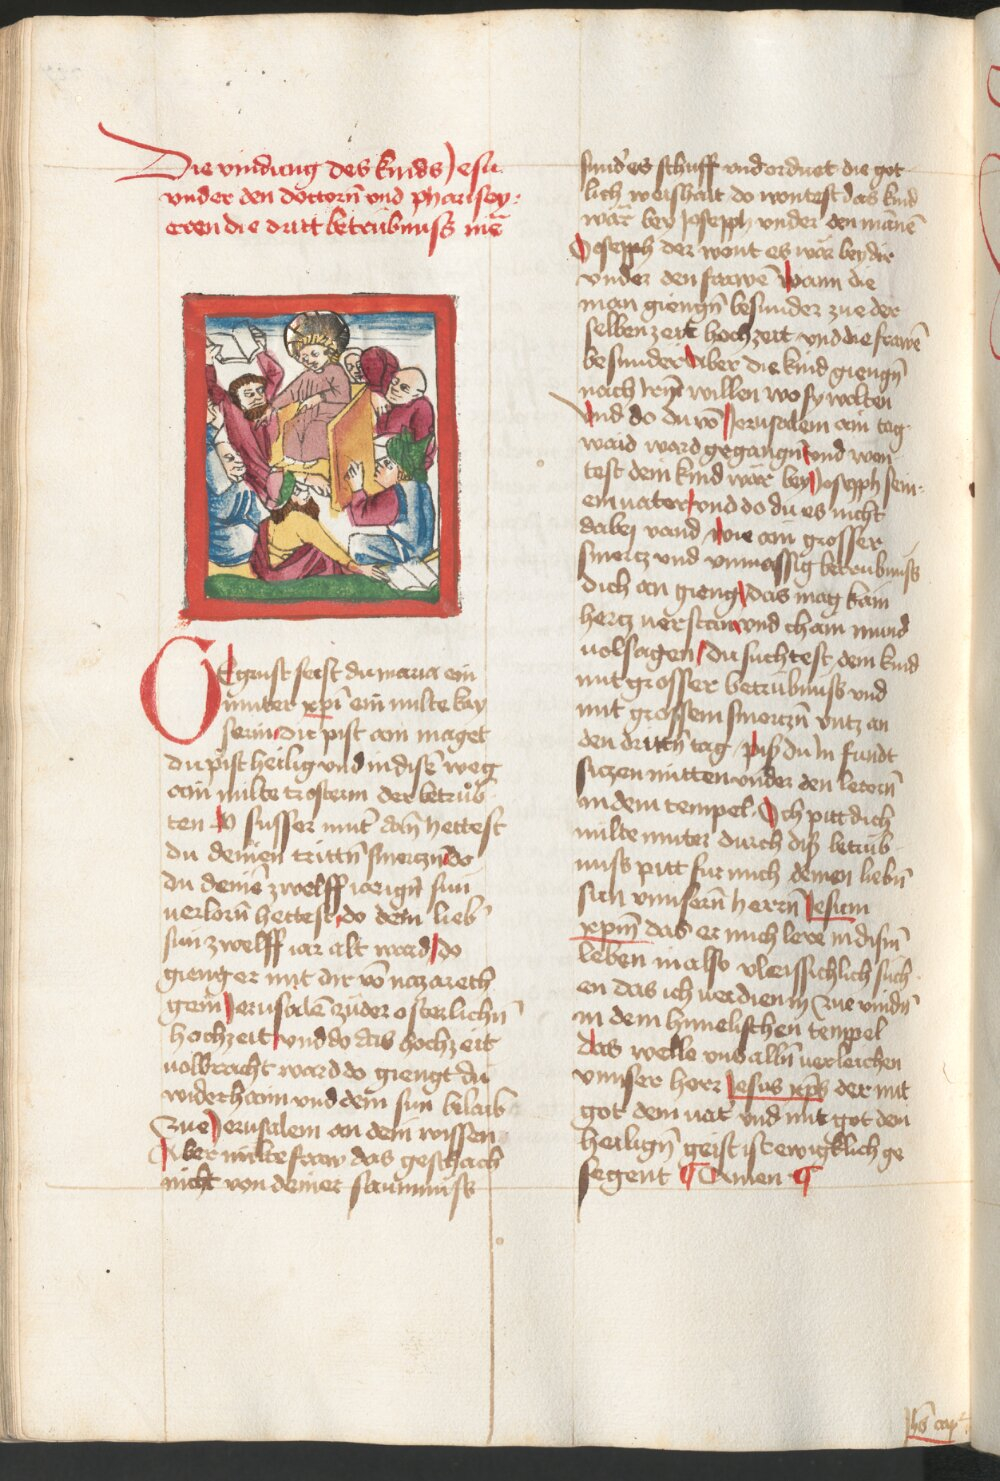 Die vindung des kinds Jesu
vnder den doctorn̄ vnd pharisey-
eren die dritt betrübnuss mē
GEgrust seist du maria ein
muter xp̄i ein milte kay
serin dir pist ain maget
du pist heilig vnd in disē weg
ain milte trosterin der betrüb
ten O susser mut' dan̄ hettest
du deinen trittn̄ smerczn̄ do
du deinē zwelff ierign̄ sun
verlorn̄ hettest, do dein lieb'
sun zwelff iar alt ward, do
gieng er mit dir vō nazareth
gein Jerusalē zu der osterlichn̄
hochzeit vnd do das hochzeit
volbracht ward do giengt du
widerhaim vnd dein sun belaib
zue Jerusalem an dein wissen
Aber milte fraw das geschach
nicht von deiner saumnuss
sund'es schuff vnd ordnet die got-
lich weishait do wontest das kind
wār bey Joseph vnder den mānē
Joseph der wont es wār bey dir
vnder den frawē wann die
man giengn̄ besunder zue der
selben zeit hochzeit vnd die frawē
besunder Aber die kind giengn̄
nach irm̄ willen wo sy wolten
vnd do du vō Jerusalem ain tag
waid ward gegangn̄ vnd won
test dem kind wār bey Joseph sein-
em vater vnd do du es nicht
dabei vand wie ain grosser
smercz vnd vnmassig betrubnuss
dich an gieng, das mag kain
hercz versten vnd chain mund
volsagen, du suchtest dein kind
mit grosser betrübnuss vnd
mit grossem smerczn̄ vntz an
den drittn̄ tag, piss du in fundt
siczen mitten vnder den lerern̄
in dem tempel. Ich pitt dich
milte muter durch diss betrüb-
nuss pitt fur mich deinen liebn̄
sun vnnsern̄ herrn̄ Jesum
xp̄m̄ das er mich lere in dism̄
leben in also vleissichlich such-
en das ich verdien in zue vindn̄
in dem himelischen tempel
das welle vns alln̄ verleichen
vnnser herr Jesus xp̄s der mit
got dem vat' vnd mit got den
heilign̄ geist ist ewigklich ge
segent ¶ Amen ¶